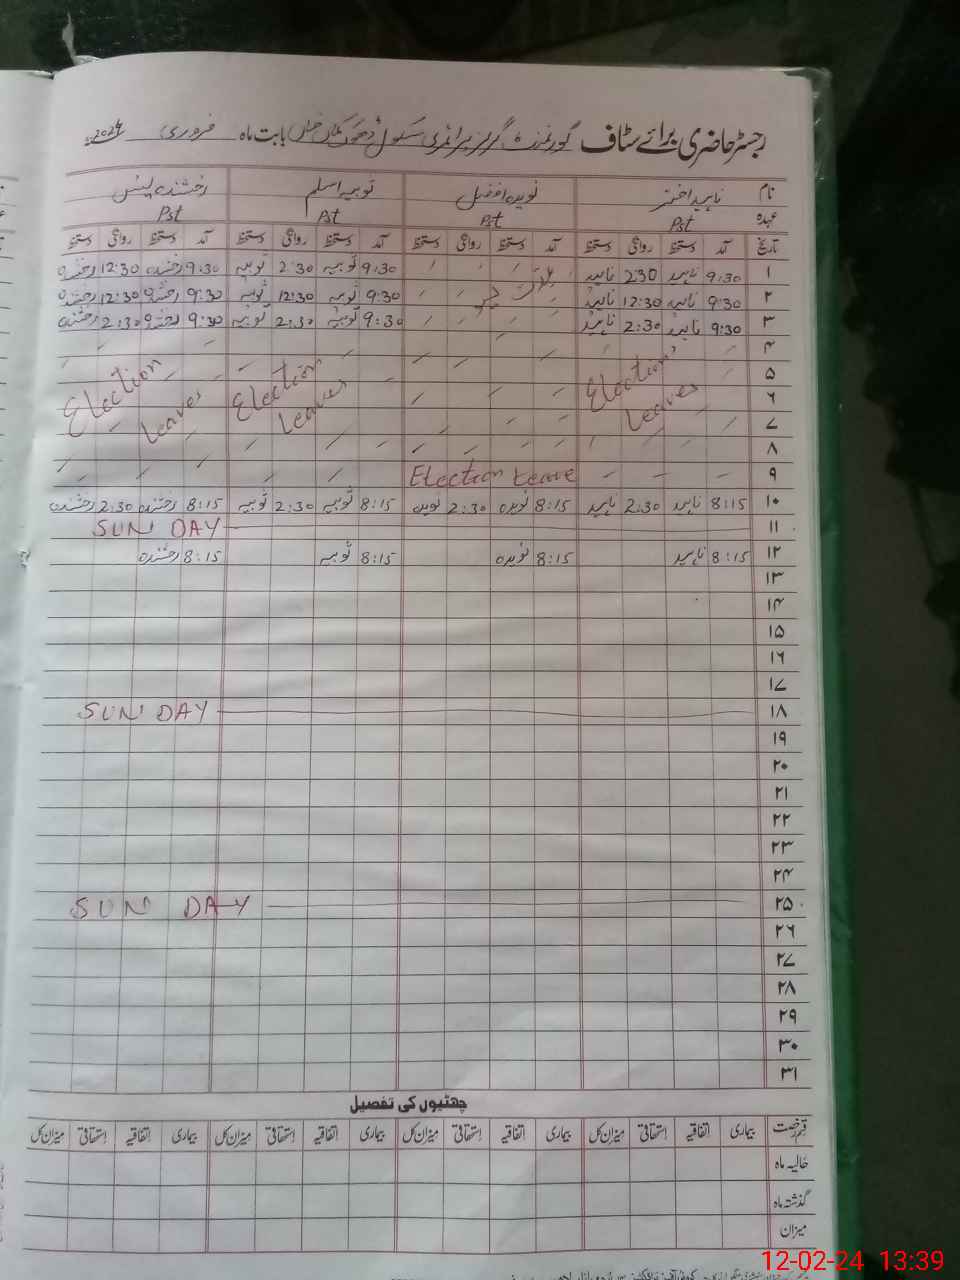 رجسٹر حاضری برائے سٹاف گورنمنٹ گرلز پرائمری سکول بابت ماہ فروری 2024ء
نام ناہید اختر نویدہ افضل ثوبیہ اسلم رخشندہ
عہدہ Pst Pst Pst Pst
تاریخ آمد دستخط روانگی دستخط آمد دستخط روانگی دستخط آمد دستخط روانگی دستخط آمد دستخط روانگی دستخط
۱ 9:30 ناہید 2:30 ناہید 9:30 ثوبیہ 2:30 ثوبیہ 9:30 رخشندہ 12:30 رخشندہ
۲ 9:30 ناہید 12:30 ناہید 9:30 ثوبیہ 12:30 ثوبیہ 9:30 رخشندہ 12:30 رخشندہ
۳ 9:30 ناہید 2:30 ناہید 9:30 ثوبیہ 2:30 ثوبیہ 9:30 رخشندہ 2:30 رخشندہ
۴
۵
Election Election Election
۶
Leaves Leaves Leaves
۷
۸
۹ Election Leave
۱۰ 8:15 ناہید 2:30 ناہید 8:15 نویدہ 2:30 نویدہ 8:15 ثوبیہ 2:30 ثوبیہ 8:15 رخشندہ 2:30 رخشندہ
۱۱ SUNDAY
۱۲ 8:15 ناہید 8:15 نویدہ 8:15 ثوبیہ 8:15 رخشندہ
۱۳
۱۴
۱۵
۱۶
۱۷
۱۸ SUNDAY
۱۹
۲۰
۲۱
۲۲
۲۳
۲۴
۲۵ SUNDAY
۲۶
۲۷
۲۸
۲۹
۳۰
۳۱
چھٹیوں کی تفصیل
قسم رخصت بیماری اتفاقیہ استحقاقی میزان کل بیماری اتفاقیہ استحقاقی میزان کل بیماری اتفاقیہ استحقاقی میزان کل بیماری اتفاقیہ استحقاقی میزان کل
حالیہ ماہ
گذشتہ ماہ
میزان
12-02-24 13:39